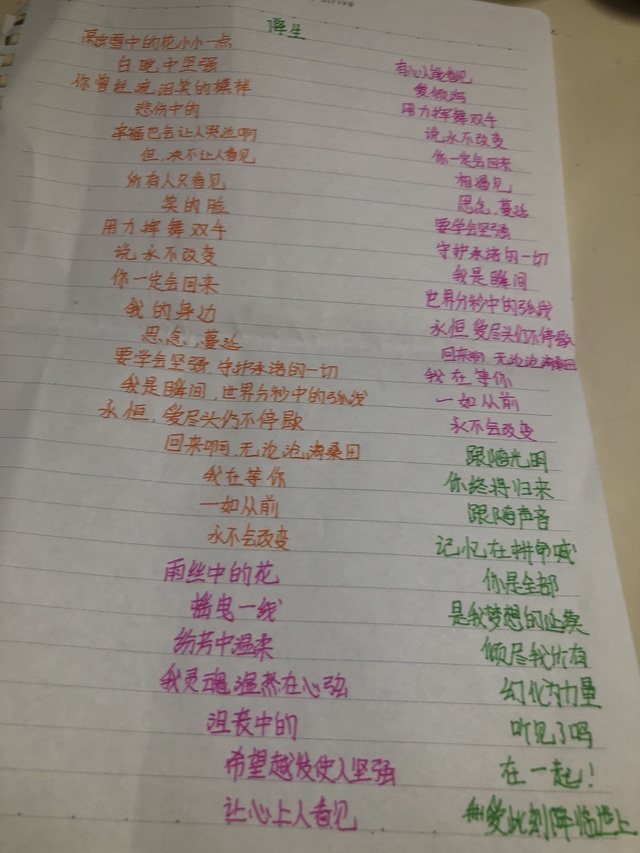 降生
深雪中的花小小一点
白晓中坚强
你曾经流泪笑的模样
悲伤中的
幸福也会让人哭泣啊
但,决不让人看见
所有人只看见
笑的脸
用力挥舞双手
说永不改变
你一定会回来
我的身边
思念,蔓延
要学会坚强,守护永诺的一切
我是瞬间,世界分秒中的弧线
永恒,爱尽头仍不停歇
回来啊,无论沧海桑田
我在等你
一如从前
永不会改变
雨丝中的花
摇曳一线
纷芳中温柔
我灵魂温然在心弦
沮丧中的
希望越发使人坚强
让心上人看见
有心人能看见
爱倾泻
用力挥舞双手
说永不改变
你一定会回来
相遇见
思念,蔓延
要学会坚强
守护永诺的一切
我是瞬间
世界分秒中的弧线
永恒,爱尽头仍不停歇
回来啊,无论沧海桑田
我在等你
一如从前
永不会改变
跟随光明
你终将归来
跟随声音
记忆在拼命喊
你是全部
是我梦想的延续
倾尽我所有
幻化为力量
听见了吗
在一起!
爱此刻降临世上